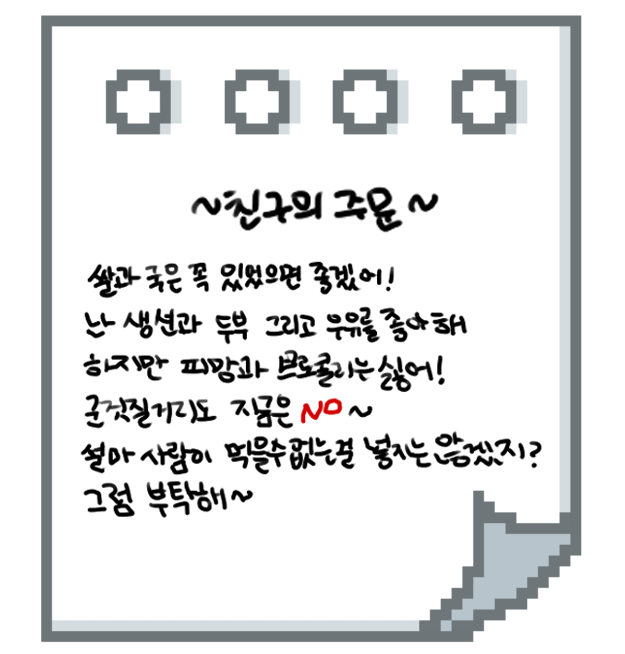 ~친구의 주문~
쌀과 국은 꼭 있었으면 좋겠어!
난 생선과 두부 그리고 우유를 좋아해
하지만 피망과 브로콜리는 싫어!
군것질거리도 지금은 NO~
설마 사람이 먹을수없는걸 넣지는 않겠지?
그럼 부탁해~